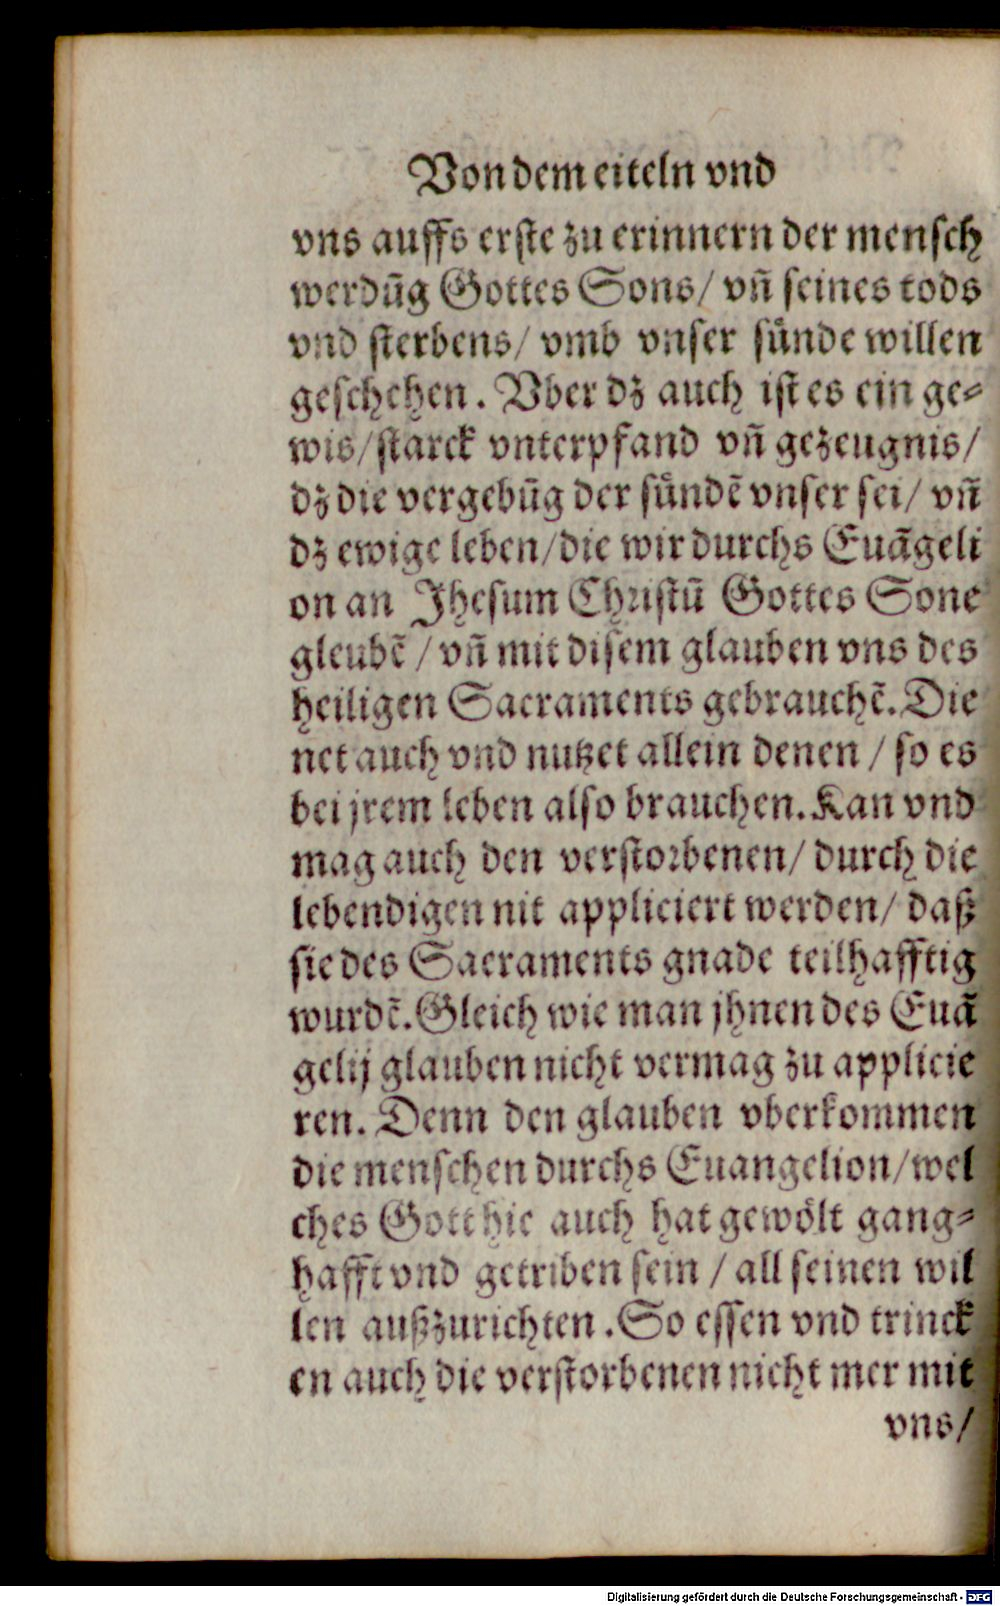 Von dem eiteln vnd
vns auffs erste zu erinnern der mensch
werdũg Gottes Sons/ vñ seines tods
vnd sterbens/ vmb vnser sünde willen
geschehen. Vber dz auch ist es ein ge-
wis/ starck vnterpfand vñ gezeugnis/
dz die vergebũg der sündẽ vnser sei/ vñ
dz ewige leben/ die wir durchs Euãgeli
on an Jhesum Christũ Gottes Sone
gleubẽ / vñ mit disem glauben vns des
heiligen Sacraments gebrauchẽ. Die
net auch vnd nutzet allein denen / so es
bei jrem leben also brauchen. Kan vnd
mag auch den verstorbenen/ durch die
lebendigen nit appliciert werden/ daß
sie des Sacraments gnade teilhafftig
wurdẽ. Gleich wie man jhnen des Euã
gelij glauben nicht vermag zu applicie
ren. Denn den glauben vberkommen
die menschen durchs Euangelion/ wel
ches Gott hie auch hat gewölt gang-
hafft vnd getriben sein / all seinen wil
len außzurichten. So essen vnd trinck
en auch die verstorbenen nicht mer mit
vns/
Digitalisierung gefördert durch die Deutsche Forschungsgemeinschaft - DFG